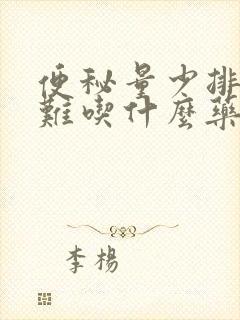 便秘量少排
難喫什麼藥
李楊